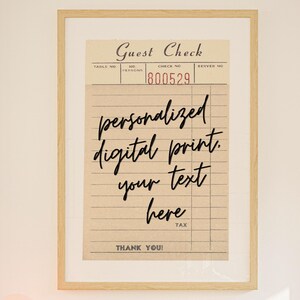 Guest Check
TABLE NO. NO. PERSONS CHECK NO. SERVER NO.
800529
personalized
digital print.
your text
here
TAX
THANK YOU!